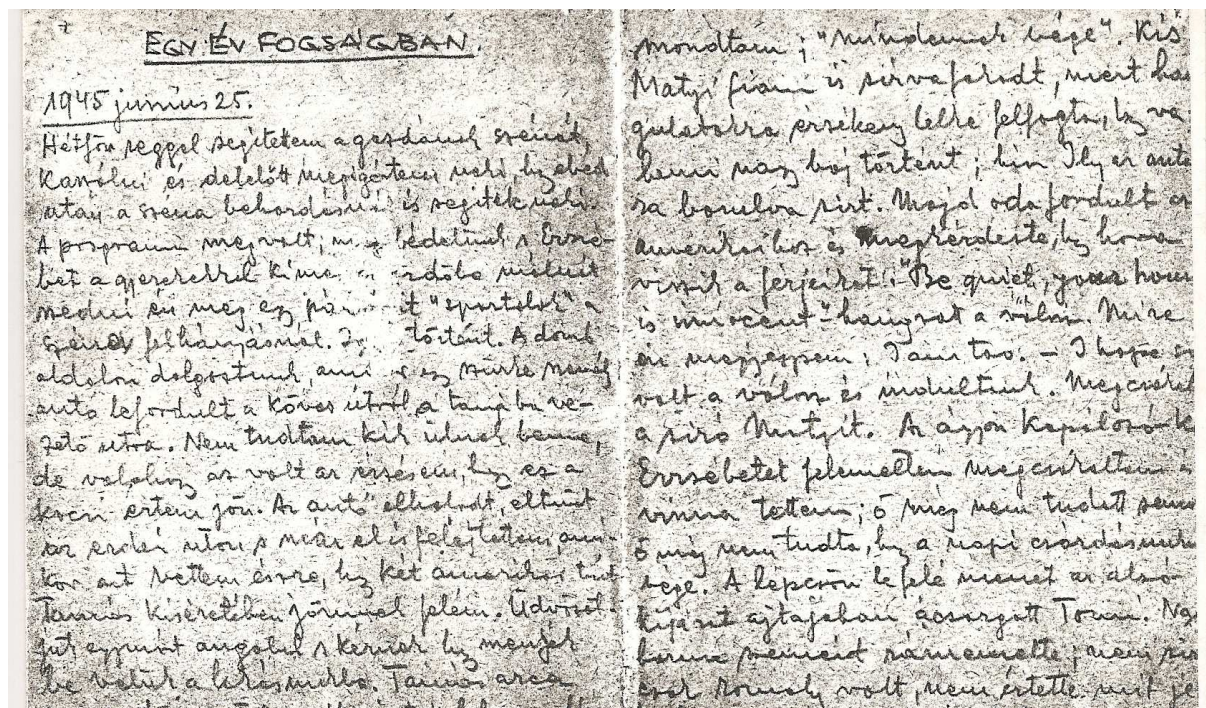 EGY ÉV FOGSÁGBAN.
1945 junius 25.
Hétfőn reggel segitetem a gazdának szénát
kaszálni és délelőtt megigértem neki, hy ebéd
után a széna behordásnál is segitek neki.
A program megvolt, meg ebédelünk s Erzsé-
bet a gyerekkel kimegy erdőbe málnát
szedni én meg egy pár "sportolok" a
széna felhányásnál. Igy történt. A domb
oldalon dolgoztunk, ami egy szürke személy
autó lefordult a köves útról a tanyába ve-
zető utra. Nem tudtam kik ülnek benne,
de valahogy az volt az érzésem, hy ez a
kocsi értem jön. Az autó elhaladt, eltünt
az erdei úton s már el is felejtettem, ami-
kor azt vettem észre, hy két amerikai tiszt
Tamás kiséretében jönnek felém. Üdvözöl-
jük egymást angolul s kérnek hy menjek
be velük a lakásunkba. Tamás arca
mondtam; "mindennek vége". Kis
Matyi fiam is sirvafakadt, mert han
gulatokra érzékeny lelke felfogta, hy va
lami nagy baj történt; hisz Ily az autó
ra borulva sirt. Majd oda fordult az
amerikaihoz és megkérdezte, hy hova
viszik a férjeiket. "Be quiet, your
is innocent" - hangzott a válasz. Mire
én megjegyzem: I am too. - I hope so
volt a válasz és indultunk. Megcsókol
a siró Matyit. Az ágyon kapálózó k
Erzsébetet felemeltem megcsókoltam s
vissza tettem; ő még nem tudott sem
ő még nem tudta, hy a napi csárdásunk
vége. A lépcsőn lefelé menet az alsó
kijárat ajtajában ácsorgott Tomi. Nagy
barna szemeit rámemelte; nem sir
csak komoly volt, nem értette mit je